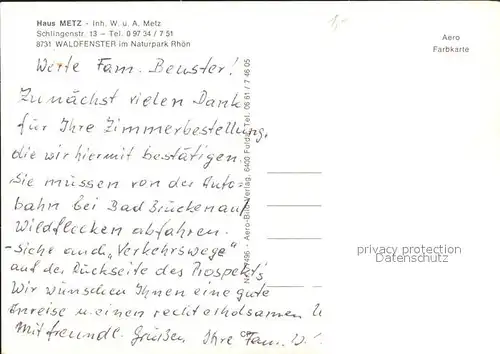 Haus METZ - Inh. W. u. A. Metz
Schlingenstr. 13 – Tel. 0 97 34 / 7 51
8731 WALDFENSTER im Naturpark Rhön
Aero
Farbkarte
Werte Fam. Beuster!
Zunächst vielen Dank
für Ihre Zimmerbestellung,
die wir hiermit bestätigen.
Sie müssen von der Auto-
bahn bei Bad Brückenau
Wildflecken abfahren.
-Siehe auch „Verkehrswege"
auf der Rückseite des Prospekt's
Wir wünschen Ihnen eine gute
Anreise u einen recht erholsamen U
Mit freundl. Grüßen Ihre Fam.
Aero-Bild-Verlag, 6400 Fulda, Tel. 06 61 / 7 46 05
privacy protection
Datenschutz